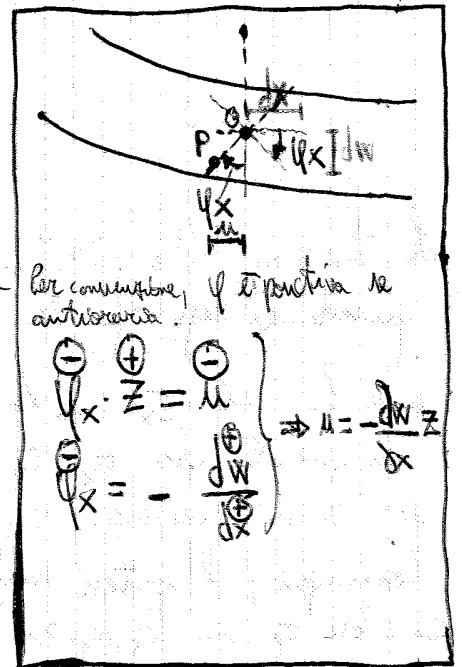 dx
O
P
φx
dw
φx
u
Per convenzione, φ è positiva se
antioraria.
⊖ ⊕ ⊖
φx · z = u
⇒ u = - dw/dx z
⊖ ⊕
φx = - dw/dx
⊕